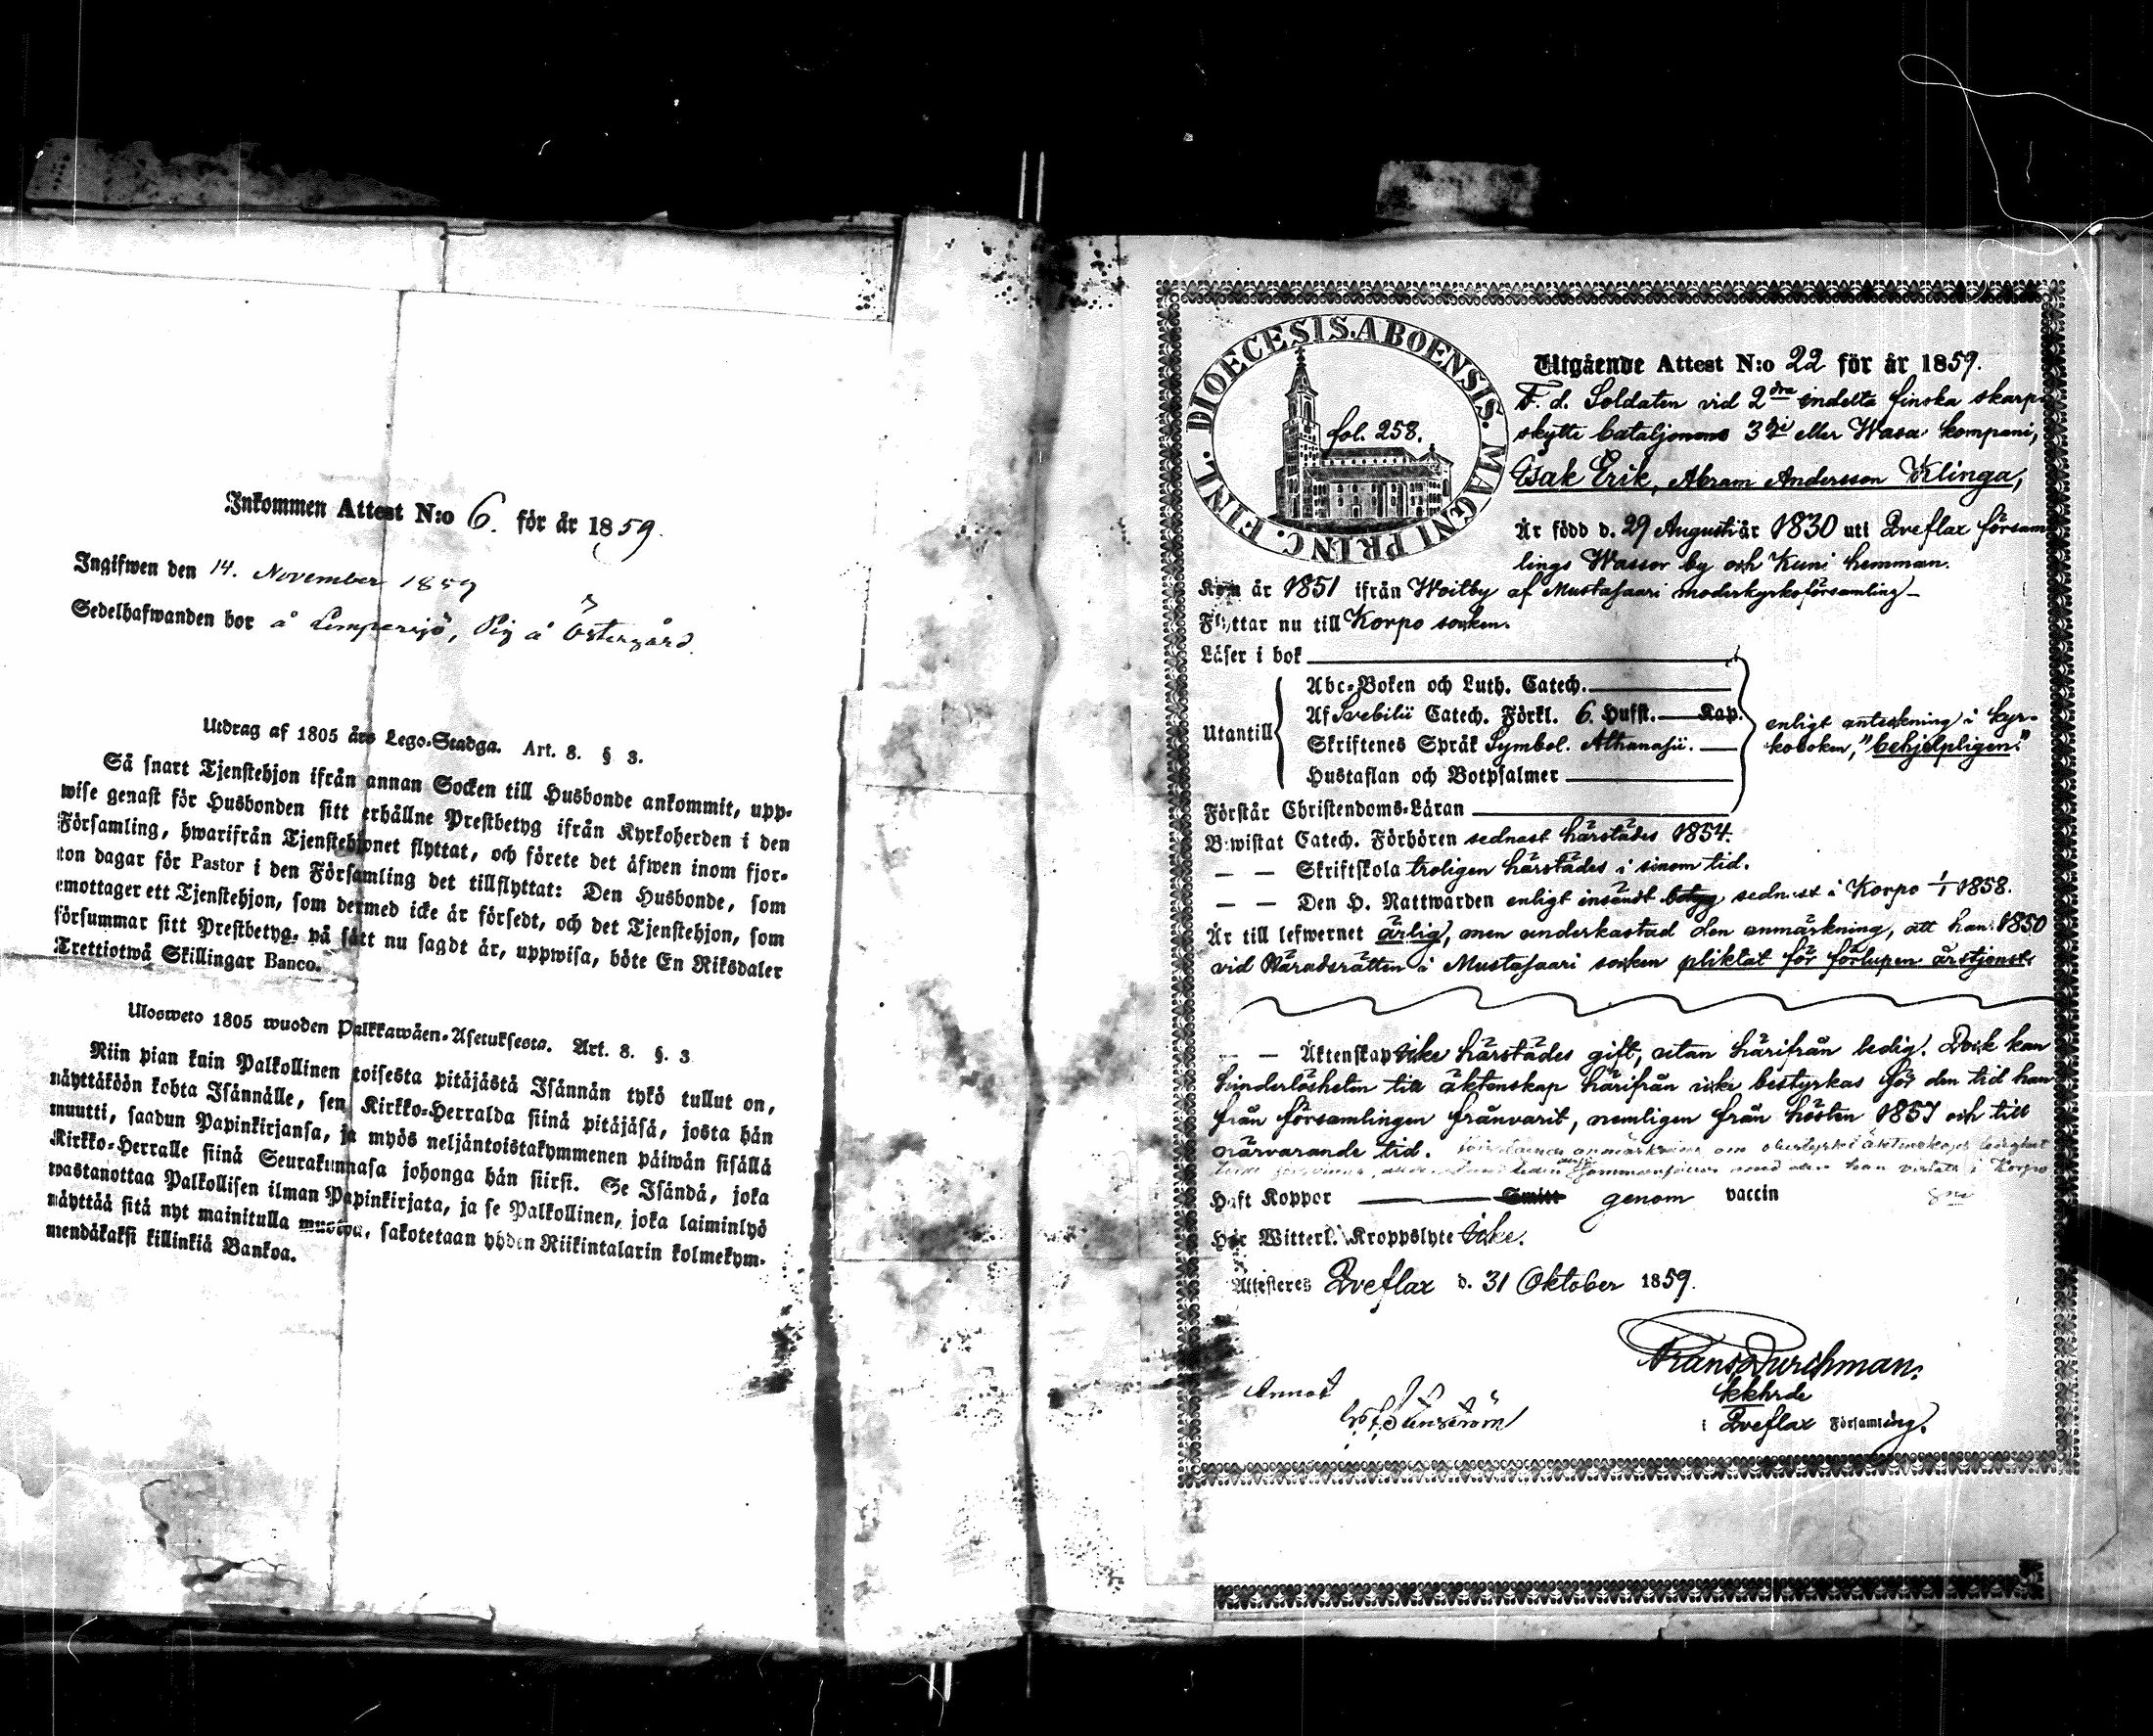 Inkommen Attest N:o 6. för år 1859.
Ingifwen den 14. November 1859
Sedelhafwanden bor å Lempersjö, Pig å Östergård.
Utdrag af 1805 års Lego-Stadga. Art. 8. § 3.
Så snart Tjenstehjon ifrån annan Socken till Husbonde ankommit, upp-
wise genast för Husbonden sitt erhållne Prestbetyg ifrån Kyrkoherden i den
Församling, hwarifrån Tjenstehjonet flyttat, och förete det äfwen inom fjor-
ton dagar för Pastor i den Församling det tillflyttat: Den Husbonde, som
emottager ett Tjenstehjon, som dermed icke är försedt, och det Tjenstehjon, som
försummar sitt Prestbetyg, på sätt nu sagdt är, uppwisa, böte En Riksdaler
Trettiotwå Skillingar Banco.
Ulosweto 1805 wuoden Palkkawäen-Asetuksesta. Art. 8. §. 3
Niin pian kuin Palkollinen toisesta pitäjästä Isännän tykö tullut on,
näyttäköön kohta Isännälle, sen Kirkko-Herralda siinä pitäjäsä, josta hän
muutti, saadun Papinkirjansa, ja myös neljäntoistakymmenen päiwän sisällä
Kirkko-Herralle siinä Seurakunnasa johonga hän siirsi. Se Isändä, joka
wastanottaa Palkollisen ilman Papinkirjata, ja se Palkollinen, joka laiminlyö
näyttää sitä nyt mainitulla muotoa, sakotetaan yhden Riikintalarin kolmekym-
mendäkaksi killinkiä Bankoa.
DIOECESIS. ABOENSIS. MAGNI PRINC. FINL.
fol. 258.
Utgående Attest N:o 22 för år 1859.
F. d. Soldaten vid 2dra indelta finska skarp-
skytte bataljonens 3dje eller Wasa kompani,
Isak Erik, Abram Andersson Klinga,
Är född d. 29 Augusti år 1830 uti Qveflax försam-
lings Wassor by och Kuni hemman.
Kom år 1851 ifrån Woitby af Mustasaari moderkyrkoförsamling
Flyttar nu till Korpo socken.
Läser i bok
Utantill
Abc-Boken och Luth. Catech.
Af Svebilii Catech. Förkl. 6. Hufst. Kap.
Skriftenes Språk Symbol. Athanasii.
Hustaflan och Botpsalmer
enligt anteckning i kyr-
koboken, "behjelpligen."
Förstår Christendoms-Läran
Bewistat Catech. Förhören sednast härstädes 1854.
— — Skriftskola troligen härstädes i sinom tid.
— — Den H. Nattwarden enligt insändt betyg sednast i Korpo 1/1 1858.
Är till lefwernet ärlig, men underkastad den anmärkning, att han 1850
vid Häradsrätten i Mustasaari socken pliktat för förlupen årstjenst.
— — Äktenskap icke härstädes gift, utan härifrån ledig. Dock kan
hinderlösheten till äktenskap härifrån icke bestyrkas för den tid han
från församlingen frånvarit, nemligen från hösten 1857 och till
närvarande tid.
Haft Koppor Smitt genom vaccin
Har Witterl. Kroppslyte Icke.
Attesteras Qveflax d. 31 Oktober 1859.
Frans Durchman.
kkhrde
i Qveflax Församling.